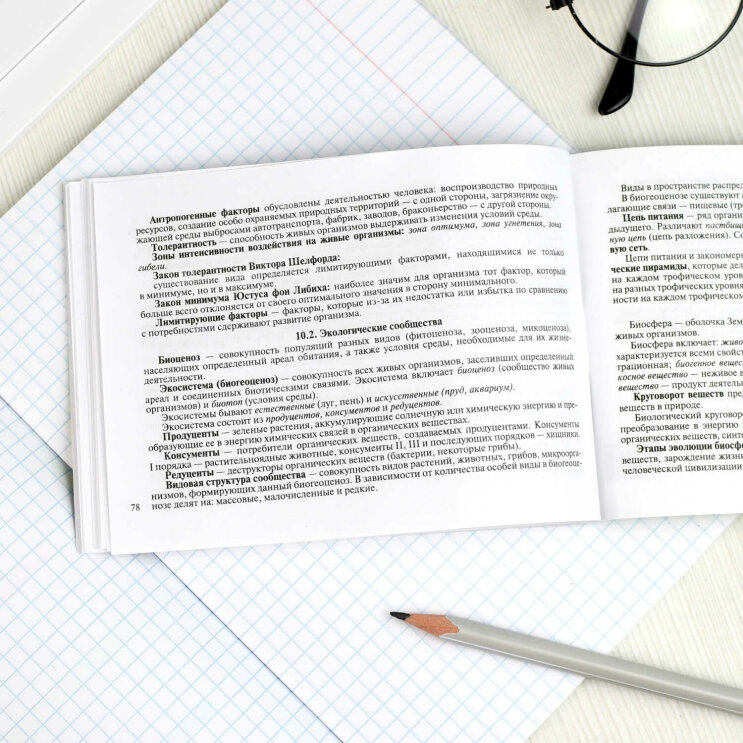 Антропогенные факторы обусловлены деятельностью человека: воспроизводство природных
ресурсов, создание особо охраняемых природных территорий — с одной стороны, загрязнение окру-
жающей среды выбросами автотранспорта, фабрик, заводов, браконьерство — с другой стороны.
Толерантность — способность живых организмов выдерживать изменения условий среды.
Зоны интенсивности воздействия на живые организмы: зона оптимума, зона угнетения, зона
гибели.
Закон толерантности Виктора Шелфорда:
существование вида определяется лимитирующими факторами, находящимися не только
в минимуме, но и в максимуме.
Закон минимума Юстуса фон Либиха: наиболее значим для организма тот фактор, который
больше всего отклоняется от своего оптимального значения в сторону минимального.
Лимитирующие факторы — факторы, которые из-за их недостатка или избытка по сравнению
с потребностями сдерживают развитие организма.
10.2. Экологические сообщества
Биоценоз — совокупность популяций разных видов (фитоценоза, зооценоза, микоценоза),
населяющих определенный ареал обитания, а также условия среды, необходимые для их жизне-
деятельности.
Экосистема (биогеоценоз) — совокупность всех живых организмов, заселивших определенный
ареал и соединенных биотическими связями. Экосистема включает биоценоз (сообщество живых
организмов) и биотоп (условия среды).
Экосистемы бывают естественные (луг, пень) и искусственные (пруд, аквариум).
Экосистема состоит из продуцентов, консументов и редуцентов.
Продуценты — зеленые растения, аккумулирующие солнечную или химическую энергию и пре-
образующие ее в энергию химических связей в органических веществах.
Консументы — потребители органических веществ, создаваемых продуцентами. Консументы
I порядка — растительноядные животные, консументы II, III и последующих порядков — хищники.
Редуценты — деструкторы органических веществ (бактерии, некоторые грибы).
Видовая структура сообщества — совокупность видов растений, животных, грибов, микроорга-
низмов, формирующих данный биогеоценоз. В зависимости от количества особей виды в биогеоце-
нозе делят на: массовые, малочисленные и редкие.
78
Виды в пространстве распред
В биогеоценозе существуют
лагающие связи — пищевые (тро
Цепь питания — ряд органи
дыдущего. Различают пастбищ
ную цепь (цепь разложения). Со
вую сеть.
Цепи питания и закономерн
ческие пирамиды, которые дел
на каждом трофическом уров
на разных трофических уровня
ности на каждом трофическом
Биосфера — оболочка Зем
живых организмов.
Биосфера включает: живо
характеризуется всеми свойст
трационная; биогенное вещес
косное вещество — неживое в
вещество — продукт деятель
Круговорот веществ пред
веществ в природе.
Биологический круговор
преобразование в энергию
органических веществ, синт
Этапы эволюции биосф
веществ, зарождение жизн
человеческой цивилизации